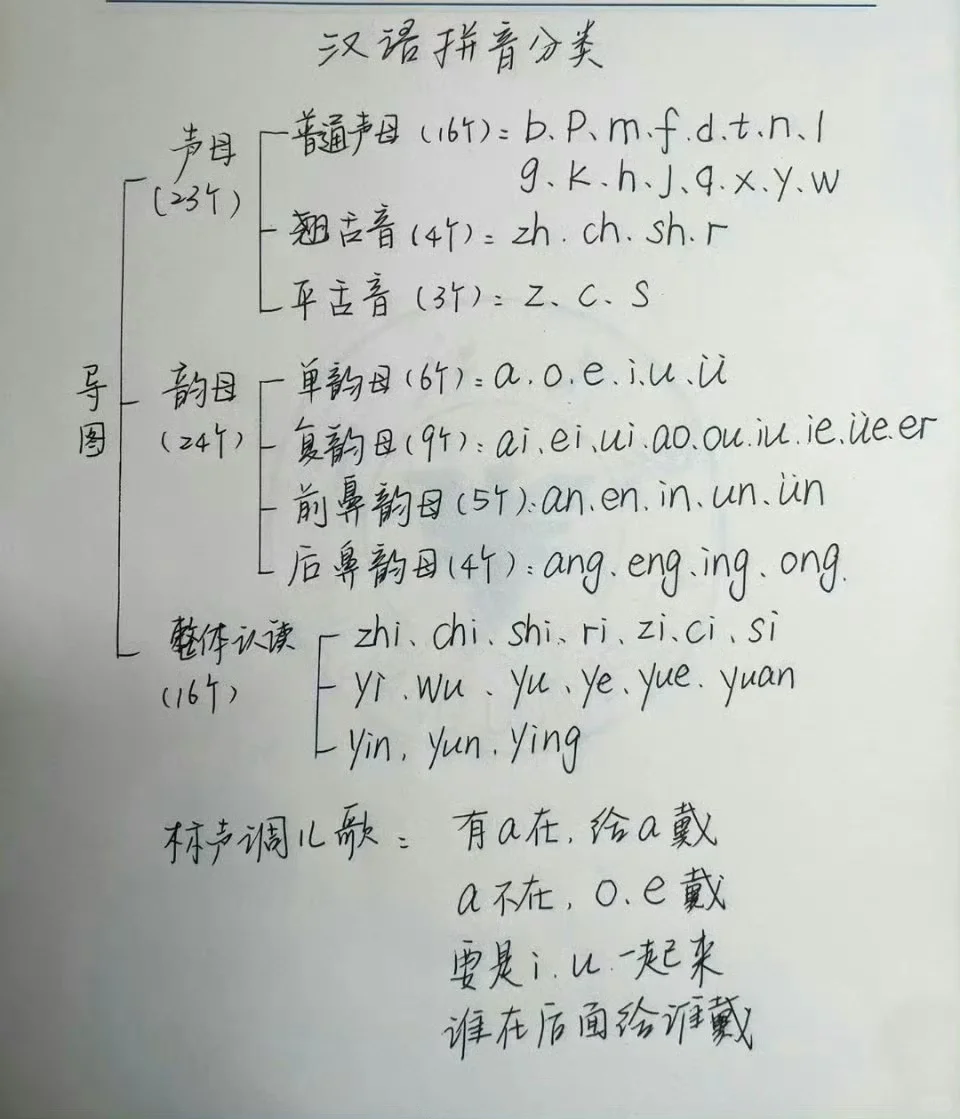 汉语拼音分类
导图
声母
(23个)
普通声母(16个):b、p、m、f、d、t、n、l
g、k、h、j、q、x、y、w
翘舌音(4个):zh、ch、sh、r
平舌音(3个):z、c、s
韵母
(24个)
单韵母(6个):a、o、e、i、u、ü
复韵母(9个):ai、ei、ui、ao、ou、iu、ie、üe、er
前鼻韵母(5个):an、en、in、un、ün
后鼻韵母(4个):ang、eng、ing、ong
整体认读
(16个)
zhi、chi、shi、ri、zi、ci、si
yi、wu、yu、ye、yue、yuan
yin、yun、ying
标声调儿歌:
有a在,给a戴
a不在,o、e戴
要是i、u一起来
谁在后面给谁戴